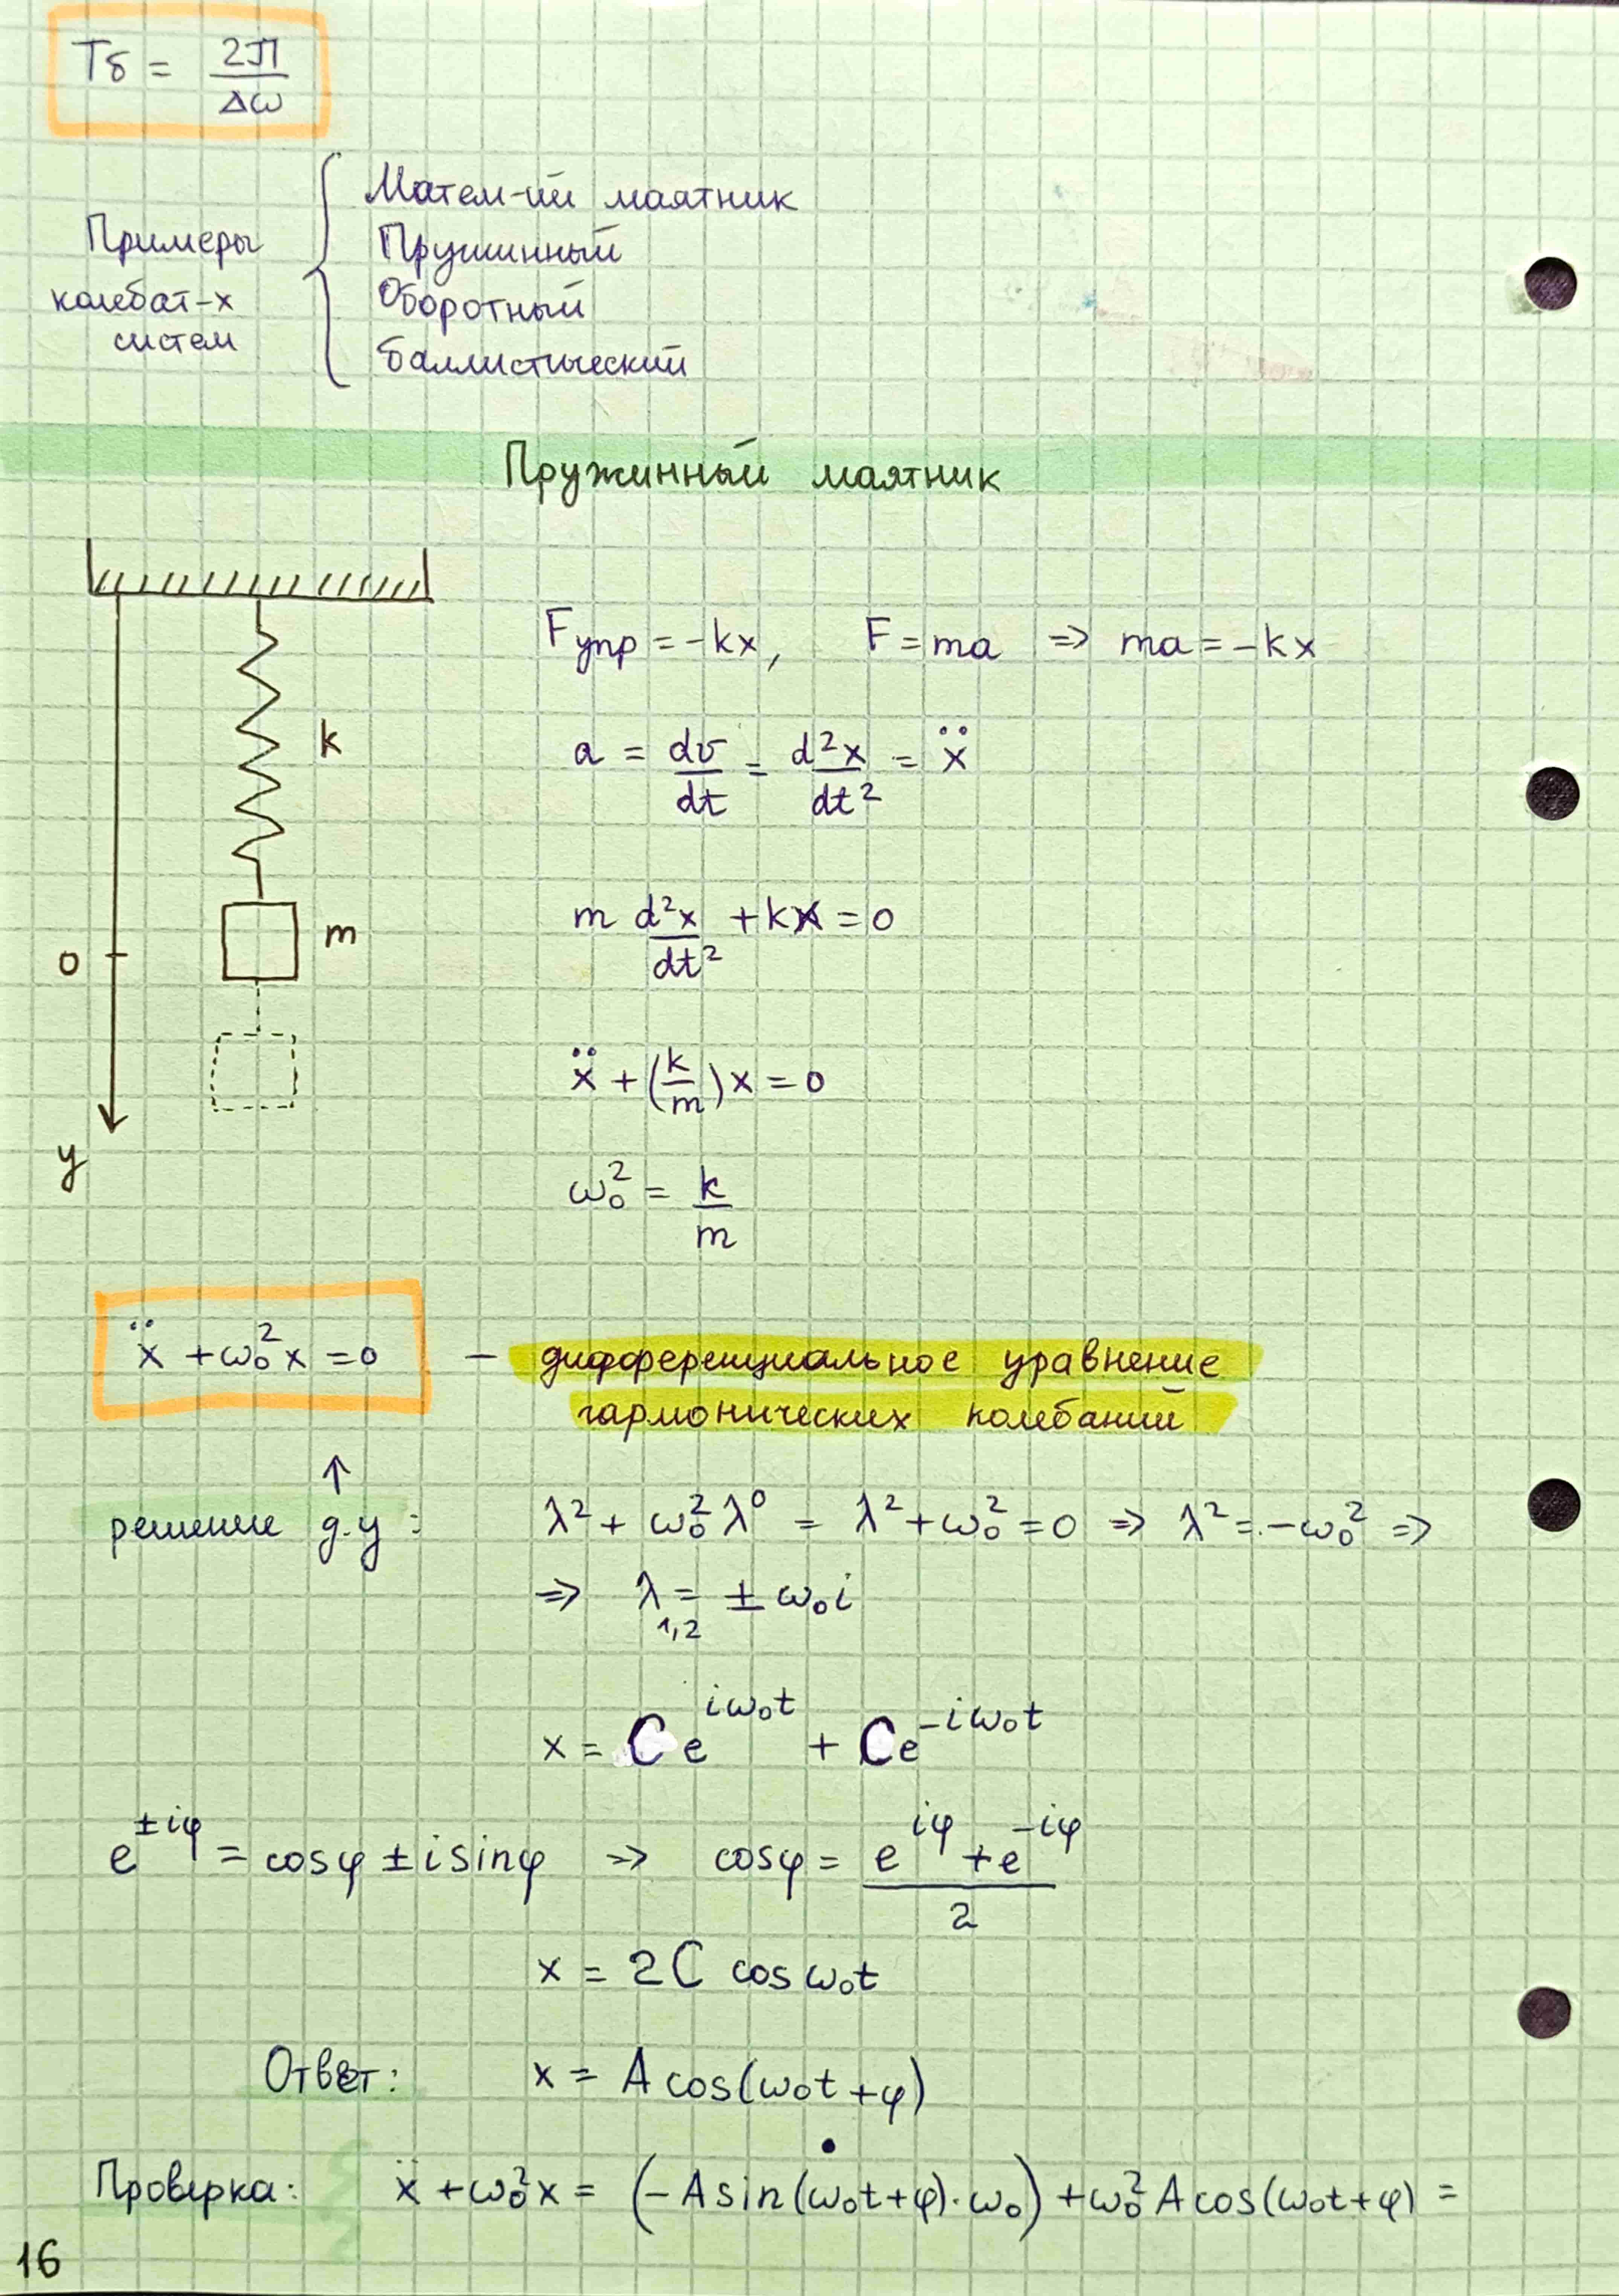 Tδ = 2π/Δω
Примеры колебат-х систем
Матем-ий маятник
Пружинный
Оборотный
баллистический
Пружинный маятник
Fупр = -kx, F = ma ⇒ ma = -kx
k
a = dv/dt = d²x/dt² = ẍ
m
m d²x/dt² + kx = 0
0
ẍ + (k/m)x = 0
y
ω₀² = k/m
ẍ + ω₀²x = 0 – дифференциальное уравнение
гармонических колебаний
↑
решение д.у: λ² + ω₀²λ⁰ = λ² + ω₀² = 0 ⇒ λ² = -ω₀² ⇒
⇒ λ₁,₂ = ± ω₀i
x = Ce^(iω₀t) + Ce^(-iω₀t)
e^(±iφ) = cosφ ± isinφ ⇒ cosφ = (e^(iφ) + e^(-iφ))/2
x = 2C cosω₀t
Ответ: x = A cos(ω₀t + φ)
Проверка: ẍ + ω₀²x = (-A sin(ω₀t+φ)·ω₀)˙ + ω₀²A cos(ω₀t+φ) =
16